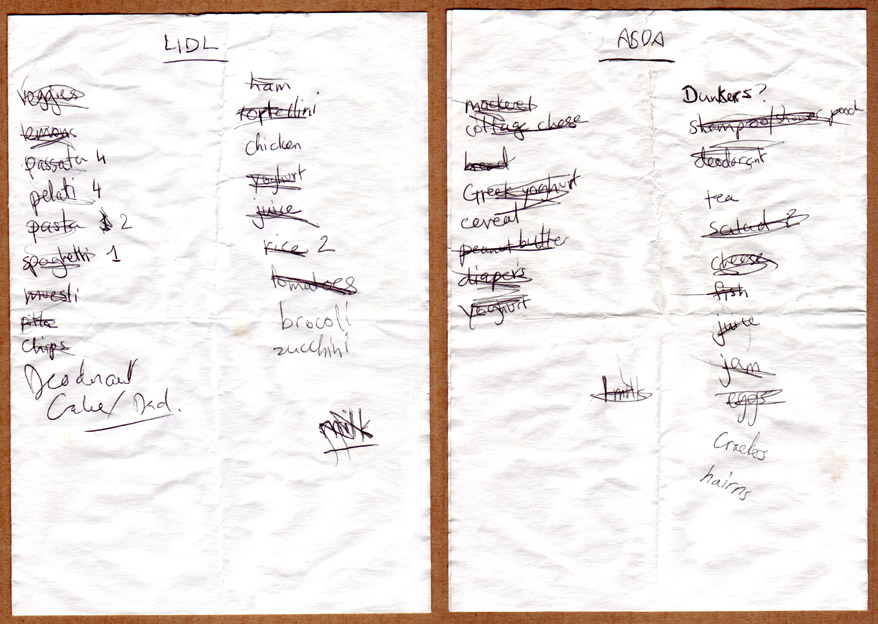 LIDL
veggies
lemons
passata 4
pelati 4
pasta 2
spaghetti 1
muesli
pitta
chips
Deodorant
Cake/ Dad.
ham
chicken
yoghurt
juice
rice 2
tomatoes
brocoli
zucchini
milk
ASDA
mackerel
cottage chese
bread
Greek yoghurt
cereal
peanut butter
diapers
Yoghurt
milk
Dunkers?
shampoo/shower
deodorant
tea
salad 2
cheese
fish
juice
jam
eggs